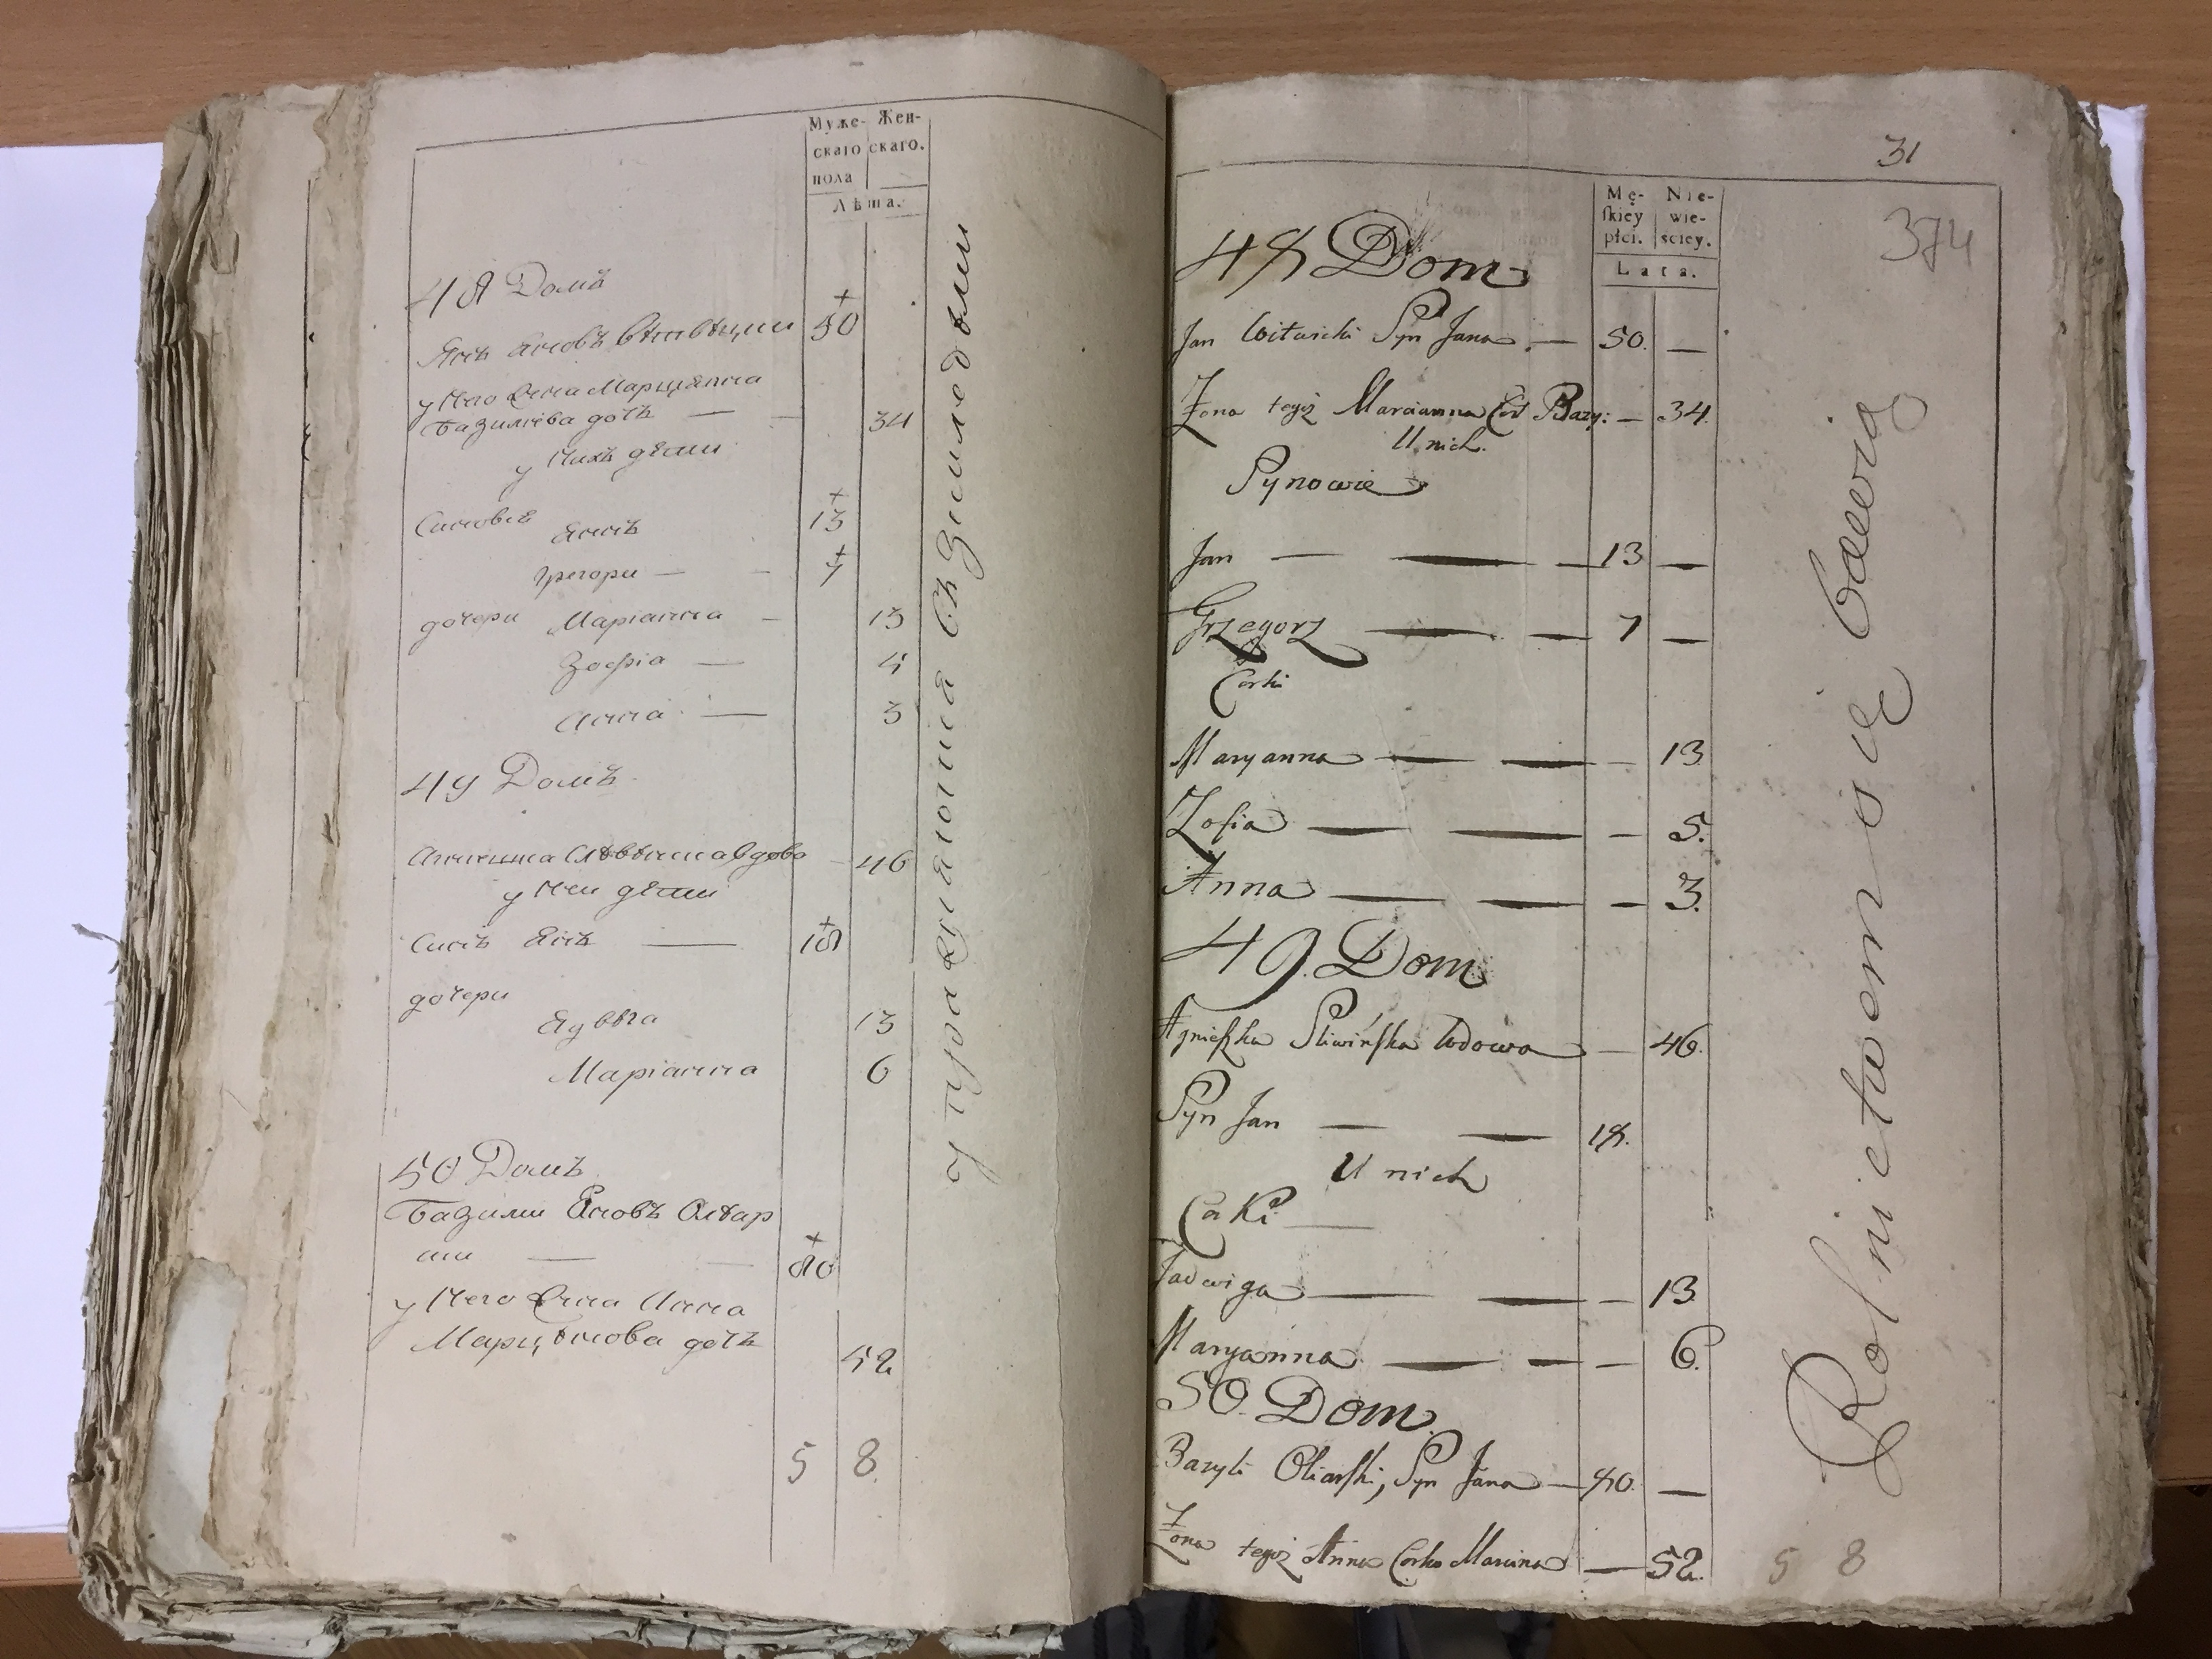 Муже- Жен-
скаго скаго.
пола
Лѣта.
48 Домъ
Янъ Яновъ 50
у Него Жена Марцянна
Базилѣва дочь — — 34
у Нихъ дѣти
Синовѣ Янъ 13
Грегори — — 7
дочери Маріанна — 13
Зофіа — 5
Анна — 3
49 Домъ
вдова — 46
у Неи дѣти
Синъ Янъ — 18
дочери
Ядвѣга 13
Маріанна 6
50 Домъ
Базили Яновъ Олѣар
ски — — 80
у Него Жена Анна
Марцѣнова дочь
52
5 8.
31
374
Mę- Nie-
skiey wie-
płci. sciey.
Lata.
48 Dom
Jan Witwicki Syn Jana — 50. —
Żona tegoż Marcianna Cór Bazy: — 34.
U nich.
Synowie
Jan — — — 13 —
Grzegorz — — 7 —
Corki
Maryanna — — — 13
Zofia — — — 5.
Anna — — — 3.
49. Dom
Agnieszka Sliwińska Wdowa — 46.
Syn Jan — — 18.
U nich
Corki —
Jadwiga — — — 13
Maryanna — — — 6.
50. Dom
Bazyli Oliarski, Syn Jana — 80. —
Żona tegoż Anna Corka Marcina — 52.
5 8
Rolnictwem się bawią